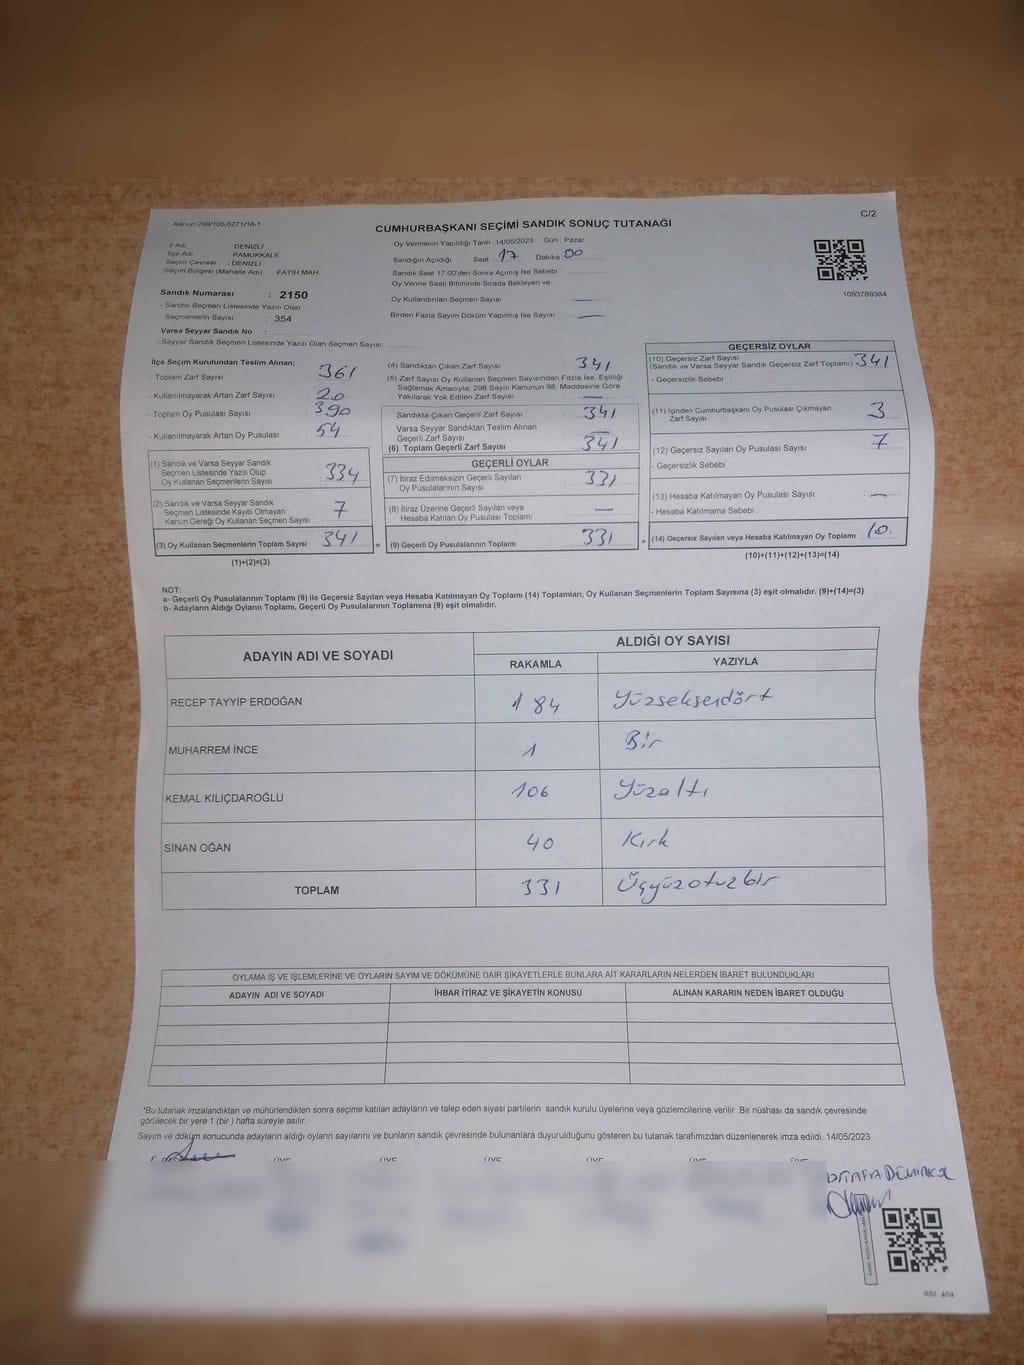 Kanun:298/105,6271/18-1
C/2
CUMHURBAŞKANI SEÇİMİ SANDIK SONUÇ TUTANAĞI
İl Adı : DENİZLİ
İlçe Adı : PAMUKKALE
Seçim Çevresi : DENİZLİ
Seçim Bölgesi (Mahalle Adı) : FATİH MAH.
Sandık Numarası : 2150
- Sandık Seçmen Listesinde Yazılı Olan
Seçmenlerin Sayısı : 354
Varsa Seyyar Sandık No :
- Seyyar Sandık Seçmen Listesinde Yazılı Olan Seçmen Sayısı:
Oy Vermenin Yapıldığı Tarih :14/05/2023 Gün : Pazar
Sandığın Açıldığı Saat 17 Dakika 00
Sandık Saat 17:00'den Sonra Açımış İse Sebebi
Oy Verme Saati Bitiminde Sırada Bekleyen ve
Oy Kullandırılan Seçmen Sayısı —
Birden Fazla Sayım Döküm Yapılmış İse Sayısı —
1093789384
İlçe Seçim Kurulundan Teslim Alınan;
- Toplam Zarf Sayısı 361
- Kullanılmayarak Artan Zarf Sayısı 20
- Toplam Oy Pusulası Sayısı 390
- Kullanılmayarak Artan Oy Pusulası 54
(1) Sandık ve Varsa Seyyar Sandık
Seçmen Listesinde Yazılı Olup
Oy Kullanan Seçmenlerin Sayısı 334
(2) Sandık ve Varsa Seyyar Sandık
Seçmen Listesinde Kayıtlı Olmayan
Kanun Gereği Oy Kullanan Seçmen Sayısı 7
(3) Oy Kullanan Seçmenlerin Toplam Sayısı 341
(1)+(2)=(3)
(4) Sandıktan Çıkan Zarf Sayısı 341
(5) Zarf Sayısı Oy Kullanan Seçmen Sayısından Fazla İse, Eşitliği
Sağlamak Amacıyla, 298 Sayılı Kanunun 98. Maddesine Göre
Yakılarak Yok Edilen Zarf Sayısı —
Sandıkta Çıkan Geçerli Zarf Sayısı 341
Varsa Seyyar Sandıktan Teslim Alınan
Geçerli Zarf Sayısı —
(6) Toplam Geçerli Zarf Sayısı 341
GEÇERLİ OYLAR
(7) İtiraz Edilmeksizin Geçerli Sayılan
Oy Pusulalarının Sayısı 331
(8) İtiraz Üzerine Geçerli Sayılan veya
Hesaba Katılan Oy Pusulası Toplamı —
= (9) Geçerli Oy Pusulalarının Toplamı 331
GEÇERSİZ OYLAR
(10) Geçersiz Zarf Sayısı
(Sandık ve Varsa Seyyar Sandık Geçersiz Zarf Toplamı) 341
- Geçersizlik Sebebi
(11) İçinden Cumhurbaşkanı Oy Pusulası Çıkmayan
Zarf Sayısı 3
(12) Geçersiz Sayılan Oy Pusulası Sayısı 7
- Geçersizlik Sebebi :
(13) Hesaba Katılmayan Oy Pusulası Sayısı —
- Hesaba Katılmama Sebebi :
+ (14) Geçersiz Sayılan veya Hesaba Katılmayan Oy Toplamı 10.
(10)+(11)+(12)+(13)=(14)
NOT:
a- Geçerli Oy Pusulalarının Toplamı (9) ile Geçersiz Sayılan veya Hesaba Katılmayan Oy Toplamı (14) Toplamları, Oy Kullanan Seçmenlerin Toplam Sayısına (3) eşit olmalıdır. (9)+(14)=(3)
b- Adayların Aldığı Oyların Toplamı, Geçerli Oy Pusulalarının Toplamına (9) eşit olmalıdır.
ADAYIN ADI VE SOYADI
ALDIĞI OY SAYISI
RAKAMLA YAZIYLA
RECEP TAYYİP ERDOĞAN 184 Yüzseksendört
MUHARREM İNCE 1 Bir
KEMAL KILIÇDAROĞLU 106 Yüzaltı
SİNAN OĞAN 40 Kırk
TOPLAM 331 Üçyüzotuzbir
OYLAMA İŞ VE İŞLEMLERİNE VE OYLARIN SAYIM VE DÖKÜMÜNE DAİR ŞİKAYETLERLE BUNLARA AİT KARARLARIN NELERDEN İBARET BULUNDUKLARI
ADAYIN ADI VE SOYADI İHBAR İTİRAZ VE ŞİKAYETİN KONUSU ALINAN KARARIN NEDEN İBARET OLDUĞU
*Bu tutanak imzalandıktan ve mühürlendikten sonra seçime katılan adayların ve talep eden siyasi partilerin sandık kurulu üyelerine veya gözlemcilerine verilir. Bir nüshası da sandık çevresinde
görülecek bir yere 1 (bir) hafta süreyle asılır.
Sayım ve döküm sonucunda adayların aldığı oyların sayılarını ve bunların sandık çevresinde bulunanlara duyurulduğunu gösteren bu tutanak tarafımızdan düzenlenerek imza edildi. 14/05/2023
ÜYE ÜYE ÜYE ÜYE ÜYE ÜYE
DEMİRKOL